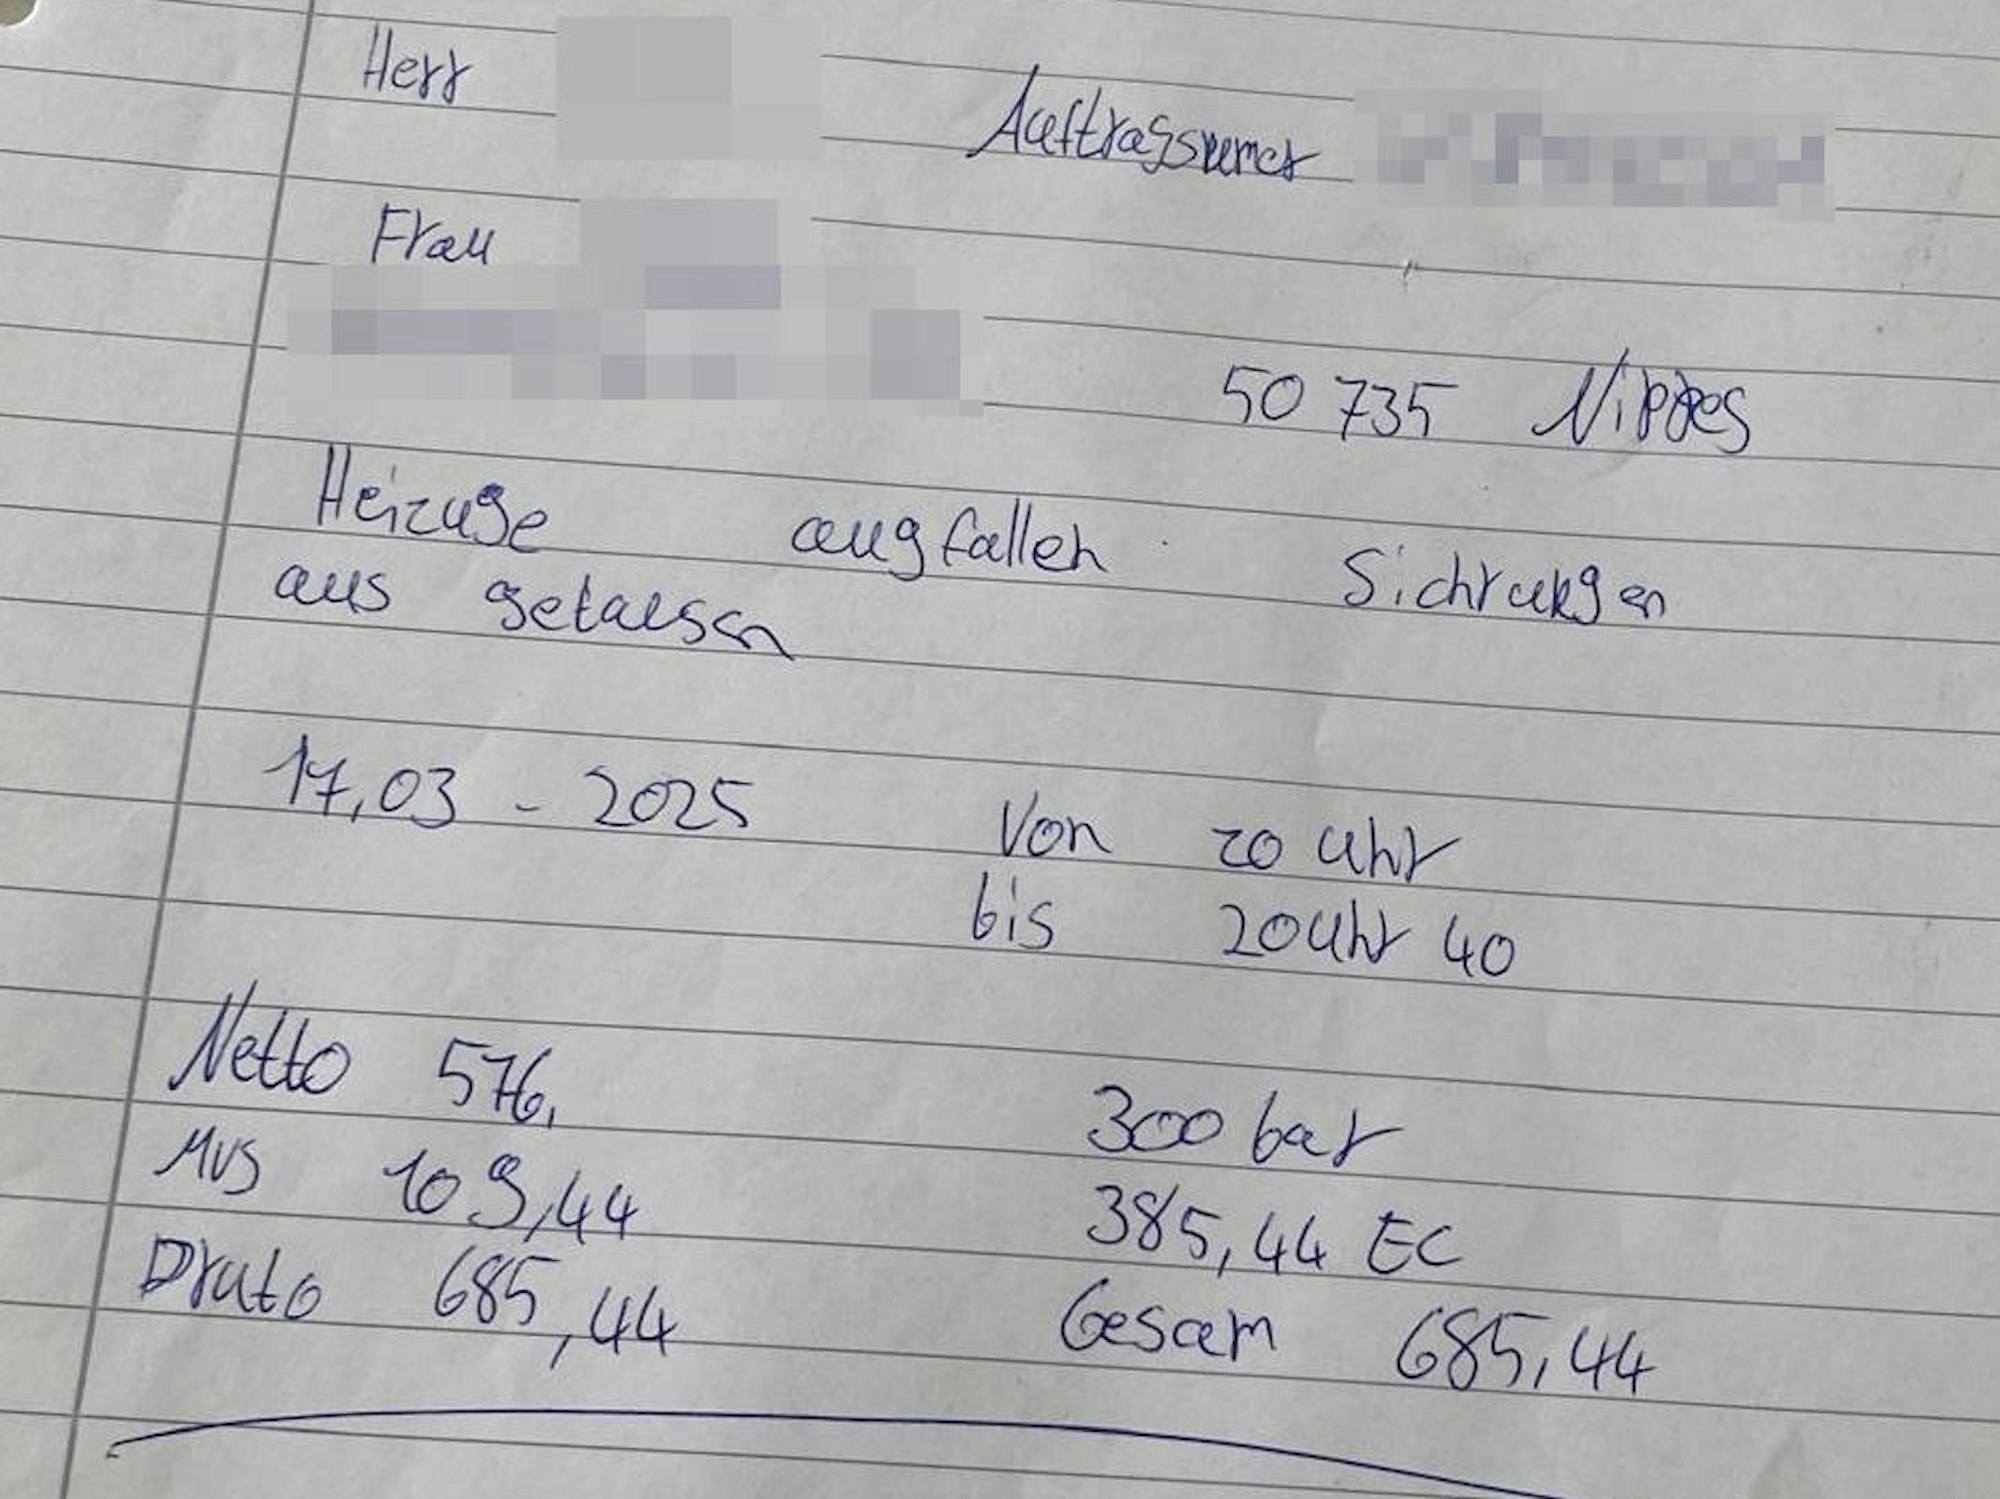 Herr
Auftragsnumer
Frau
50 735 Nippes
Heizuge augfallen Sichrungen
aus getauscn
17,03 - 2025 Von 20 Uhr
bis 20 Uhr 40
Netto 576, 300 bar
MVS 109,44 385,44 EC
Bruto 685,44 Gesam 685,44